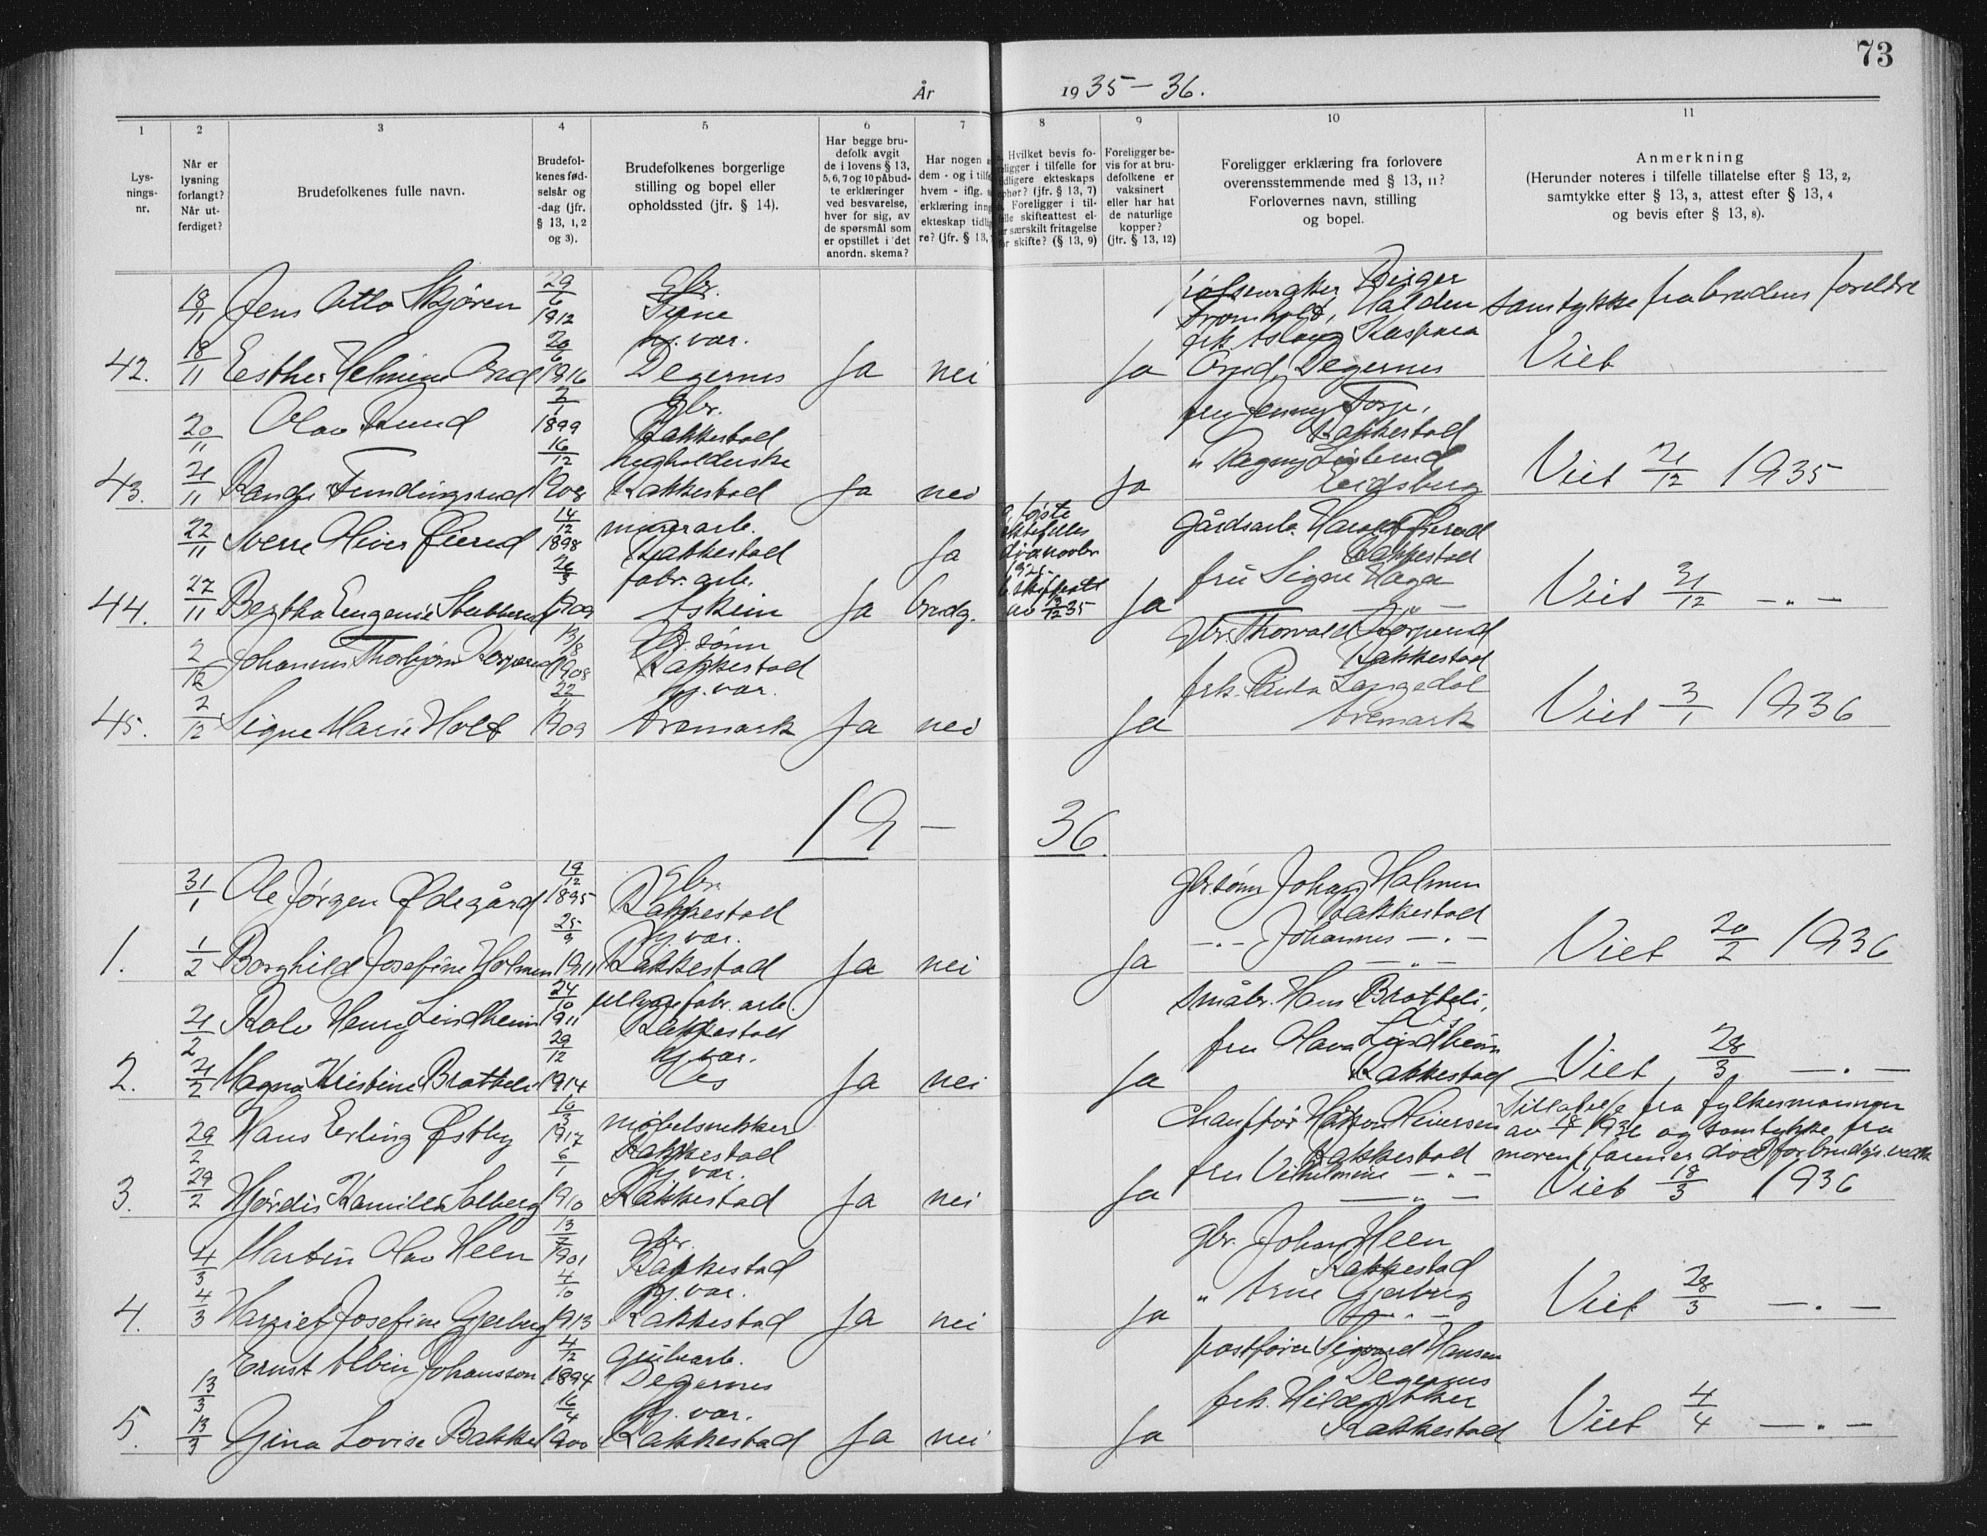 73
År 1935-36.
1 2 3 4 5 6 7 8 9 10 11
Lys-
nings-
nr.
Når er
lysning
forlangt?
Når ut-
ferdiget?
Brudefolkenes fulle navn.
Brudefol-
kenes fød-
selsår og
-dag (jfr.
§ 13, 1, 2
og 3).
Brudefolkenes borgerlige
stilling og bopel eller
opholdssted (jfr. § 14).
Har begge bru-
defolk avgitt
de i lovens § 13,
5, 6, 7 og 10 påbud-
te erklæringer
ved besvarelse,
hver for sig, av
de spørsmål som
er opstillet i det
anordn. skema?
Har nogen a
dem - og i tilfe
hvem - iflg.
erklæring inng
ekteskap tidlig
re? (jfr. § 13,
Hvilket bevis fo-
religger i tilfelle for
tidligere ekteskaps
ophør? (jfr. § 13, 7)
Foreligger i til-
felle skifteattest el-
er særskilt fritagelse
for skifte? (§ 13, 9)
Foreligger be-
vis for at bru-
defolkene er
vaksinert
eller har hat
de naturlige
kopper?
(jfr. § 13, 12)
Foreligger erklæring fra forlovere
overensstemmende med § 13, 11?
Forlovernes navn, stilling
og bopel.
Anmerkning
(Herunder noteres i tilfelle tillatelse efter § 13, 2,
samtykke efter § 13, 3, attest efter § 13, 4
og bevis efter § 13, 8).
18/11 Jens Otto Skjören 29/6 1912 Gbr. Tune Birger Tromholt, Halden samtykke fra brudens foreldre
42. 18/11 Esther Helmine Orud 20/6 1916 hj. var. Degernes Ja nei Ja frk. Aslaug Kaspara Orud, Degernes Viet
20/11 Olav Rud 2/1 1899 Gbr. Rakkestad fru Jenny Torp, Rakkestad
43. 21/11 Randi Fundingsrud 16/12 1908 Rakkestad Ja nei Ja " Dagny Eidsberg Viet 21/12 1935
22/11 Sverre Oliver Øierud 14/12 1898 murerarb. Rakkestad Ja gårdsarb. Harald Øierud Rakkestad
44. 27/11 Bertha Eugenie Stubberud 1909 fabr. arb. Askim Ja brudg. av 3/12 35 Ja fru Signe Haga — " — Viet 21/12 — . —
2/12 Johannes Thorbjørn Korperud 1908 Gbr. sønn Rakkestad gbr. Thorvald Korperud Rakkestad
45. 2/12 Signe Marie Holt 22/11 1909 hj. var. Aremark Ja nei Ja frk. Paula Langedal Aremark Viet 3/1 1936
19 — 36.
31/1 Ole Jørgen Ødegård 19/12 1895 Gbr. Rakkestad gbr. sønn Johan Holmen Rakkestad
1. 1/2 Borghild Josefine Holmen 25/9 1911 hj. var. Rakkestad Ja nei Ja — . — Johannes — . — Viet 20/2 1936
21/2 Rolv Henry Lindheim 24/10 1911 fabr. arb. Rakkestad småbr. Hans Bratteli,
2. 21/2 Magna Kristine Bratteli 29/12 1914 hj. var. Ja nei Ja fru Olava Lindheim Rakkestad Viet 28/3 — . —
29/2 Hans Erling Østby 10/3 1917 møbelsnekker Rakkestad chauffør Håkon Hiversen Rakkestad Tillatelse fra fylkesmannen av og samtykke fra moren (farmer død) for brudgs. vedk.
3. 29/2 Hjørdis Kamilla Solberg 6/1 1910 hj. var. Rakkestad Ja nei Ja fru Vilhelmine — " — Viet 18/3 1936
4/3 Martin Olav Heen 13/7 1901 gbr. Rakkestad gbr. Johan Heen Rakkestad
4. 4/3 Harriet Josefine Gjerberg 4/10 1913 hj. var. Rakkestad Ja nei Ja " Arne Gjerberg — " — Viet 28/3 — . —
13/3 Ernst Albin Johansson 4/12 1894 Degernes postfører Sigvard Hansen Degernes
5. 13/3 Gina Lovise Bakke 16/4 1900 hj. var. Rakkestad Ja nei Ja frk. Hilda Aker Rakkestad Viet 4/4 — . —